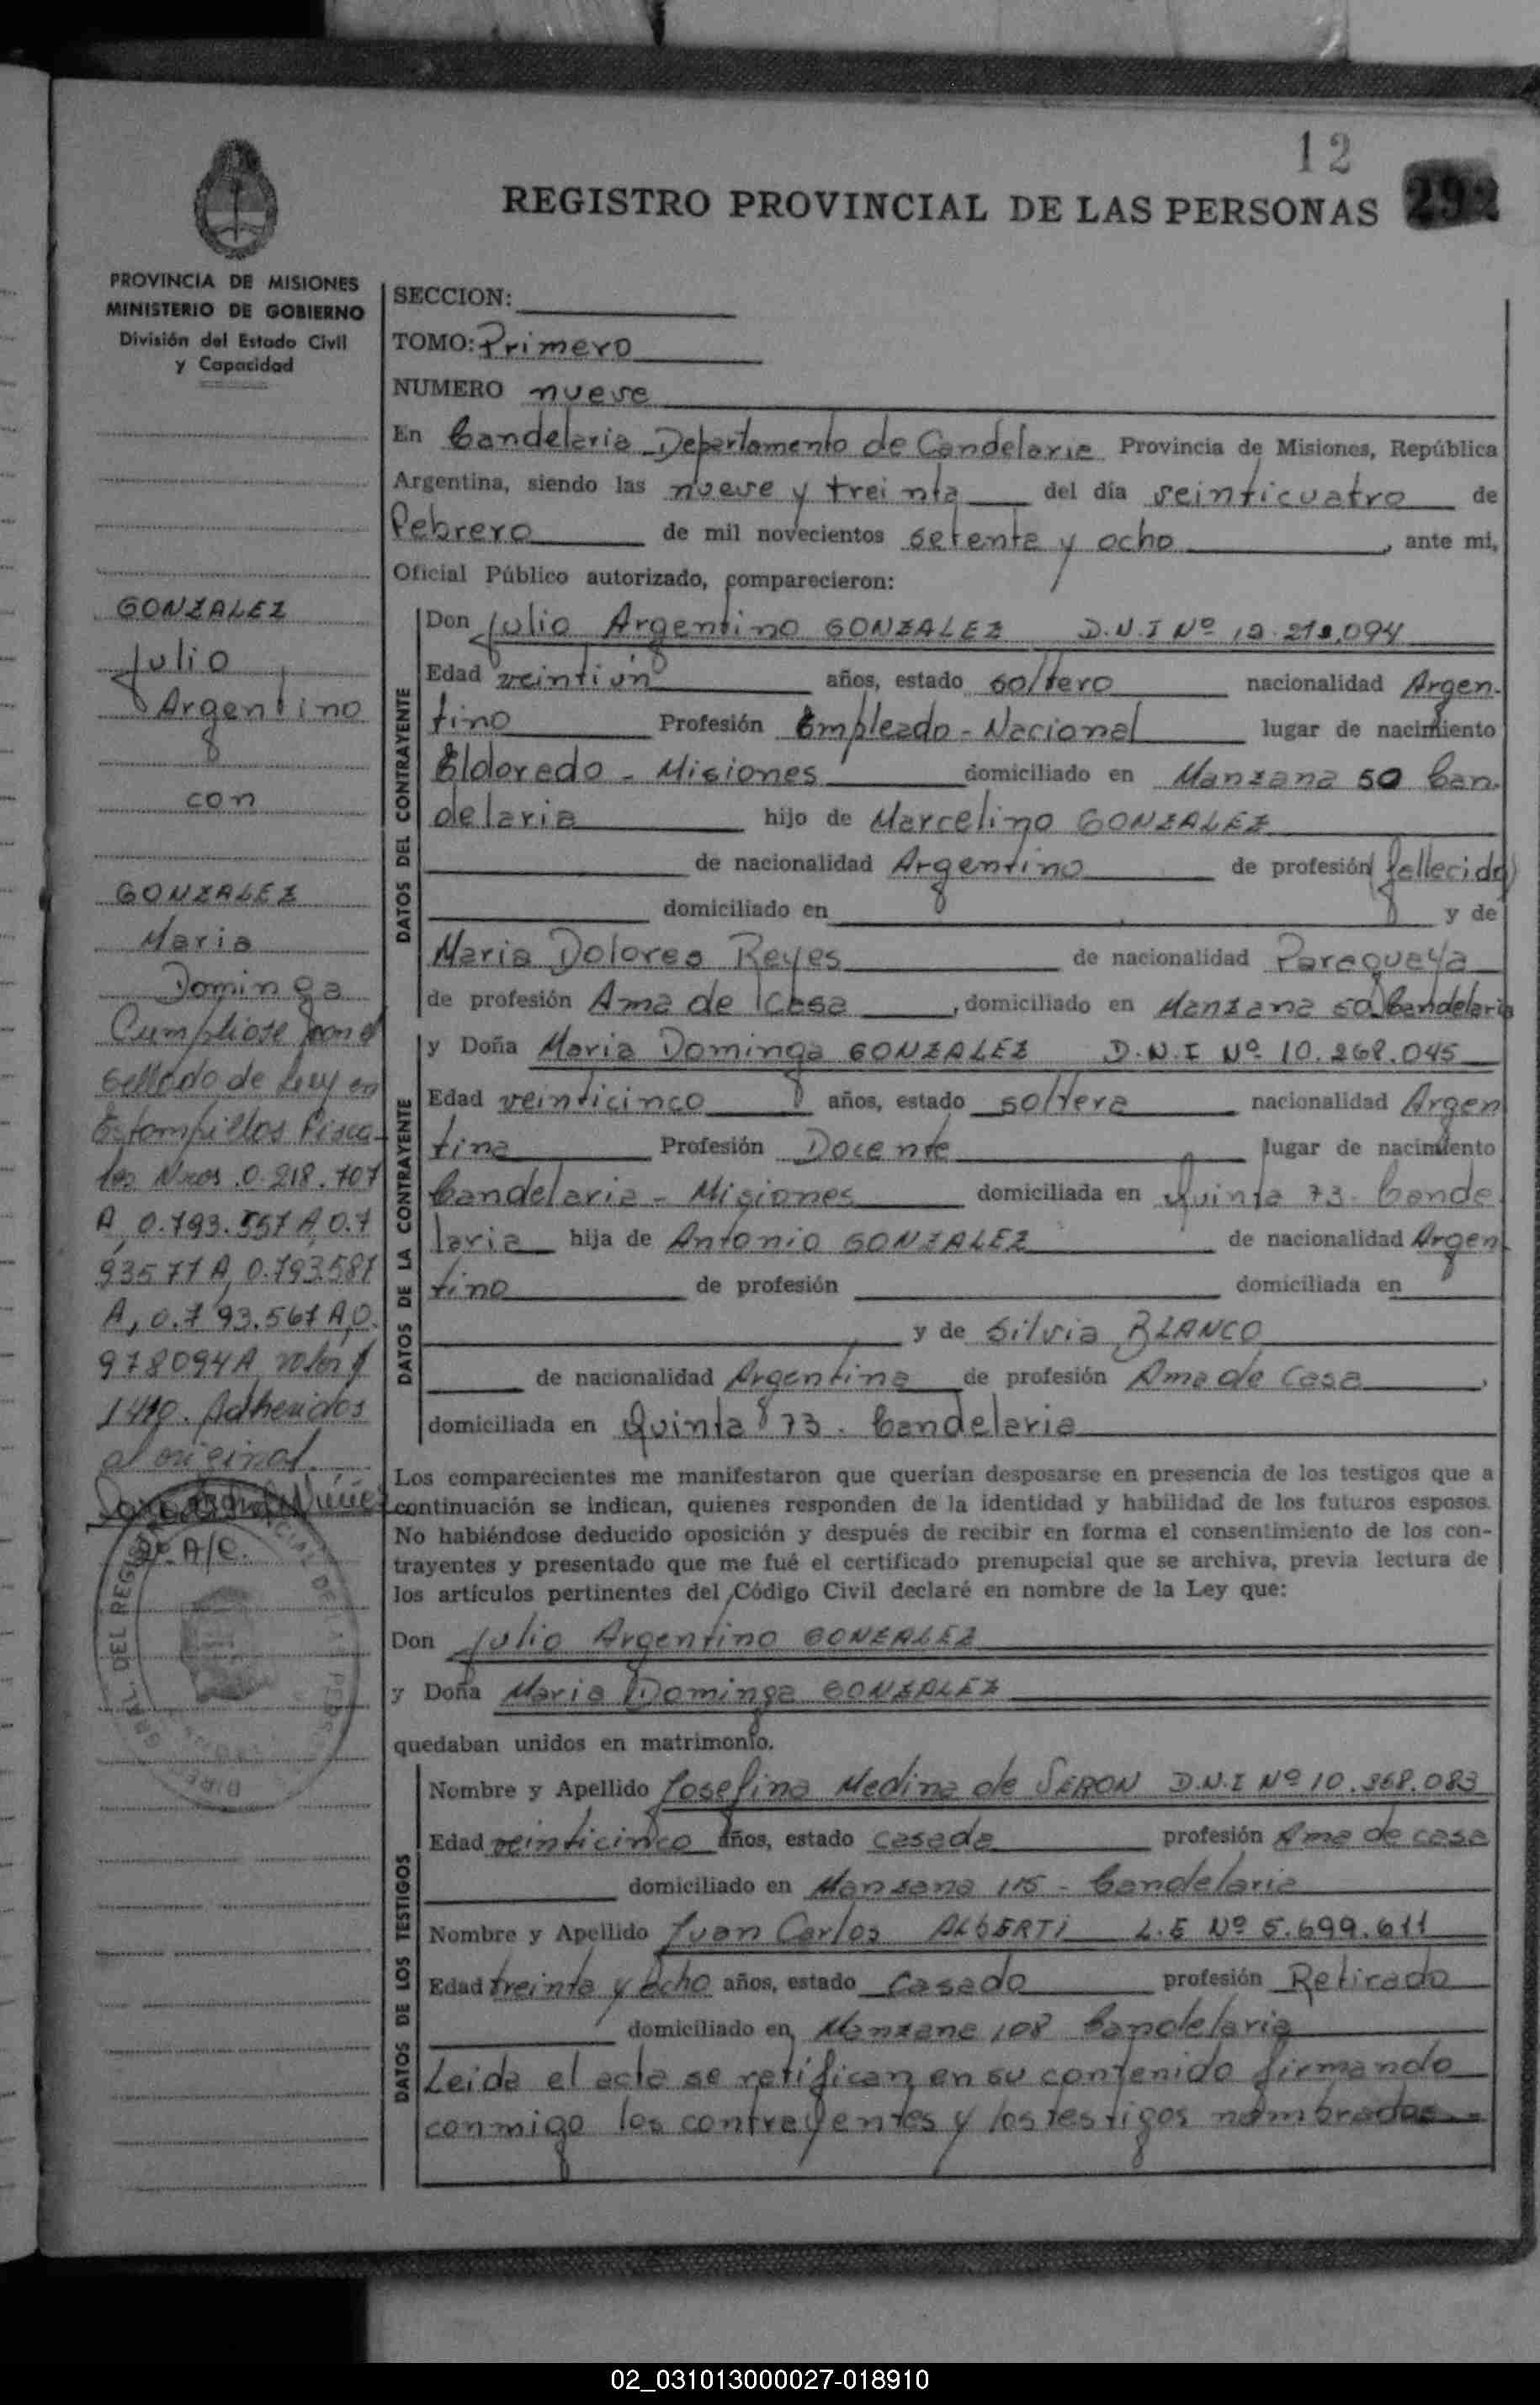 12
REGISTRO PROVINCIAL DE LAS PERSONAS 292
PROVINCIA DE MISIONES
MINISTERIO DE GOBIERNO
División del Estado Civil
y Capacidad
GONZALEZ
Julio
Argentino
con
GONZALEZ
Maria
Dominga
Cumpliose con el
sellado de Ley en
Estampillas Fisca-
les Nros 0.218.707
A, 0.793.557 A 0.7
93577 A, 0.793587
A, 0.793.567 A, 0.
978094A valor $
1410. Adheridos
al original.
A/C.
SECCION:
TOMO: Primero
NUMERO nueve
En Candelaria Departamento de Candelaria Provincia de Misiones, República
Argentina, siendo las nueve y treinta del día veinticuatro de
Febrero de mil novecientos setenta y ocho, ante mi,
Oficial Público autorizado, comparecieron:
DATOS DEL CONTRAYENTE
Don Julio Argentino GONZALEZ D.N.I Nº 094
Edad veintiún años, estado soltero nacionalidad Argen-
tino Profesión Empleado - Nacional lugar de nacimiento
Eldorado - Misiones domiciliado en Manzana 50 Can-
delaria hijo de Marcelino GONZALEZ
de nacionalidad Argentino de profesión (fallecido)
domiciliado en y de
Maria Dolores Reyes de nacionalidad Paraguaya
de profesión Ama de Casa, domiciliado en Manzana 50 Candelaria
DATOS DE LA CONTRAYENTE
y Doña Maria Dominga GONZALEZ D.N.I Nº 10.268.045
Edad veinticinco años, estado soltera nacionalidad Argen
tina Profesión Docente lugar de nacimiento
Candelaria - Misiones domiciliada en Quinta 73. Cande
laria hija de Antonio GONZALEZ de nacionalidad Argen
tino de profesión domiciliada en
y de Silvia BLANCO
de nacionalidad Argentina de profesión Ama de Casa,
domiciliada en Quinta 73. Candelaria
Los comparecientes me manifestaron que querían desposarse en presencia de los testigos que a
continuación se indican, quienes responden de la identidad y habilidad de los futuros esposos.
No habiéndose deducido oposición y después de recibir en forma el consentimiento de los con-
trayentes y presentado que me fué el certificado prenupcial que se archiva, previa lectura de
los artículos pertinentes del Código Civil declaré en nombre de la Ley que:
Don Julio Argentino GONZALEZ
y Doña Maria Dominga GONZALEZ
quedaban unidos en matrimonio.
DATOS DE LOS TESTIGOS
Nombre y Apellido Josefina Medina de SERON D.N.I Nº 10.368.083
Edad veinticinco años, estado casada profesión Ama de casa
domiciliado en Manzana 115 - Candelaria
Nombre y Apellido Juan Carlos ALBERTI L.E Nº 5.699.611
Edad treinta y ocho años, estado Casado profesión Retirado
domiciliado en Manzana 108 Candelaria
Leida el acta se ratifican en su contenido firmando
conmigo los contrayentes y los testigos nombrados
02_031013000027-018910